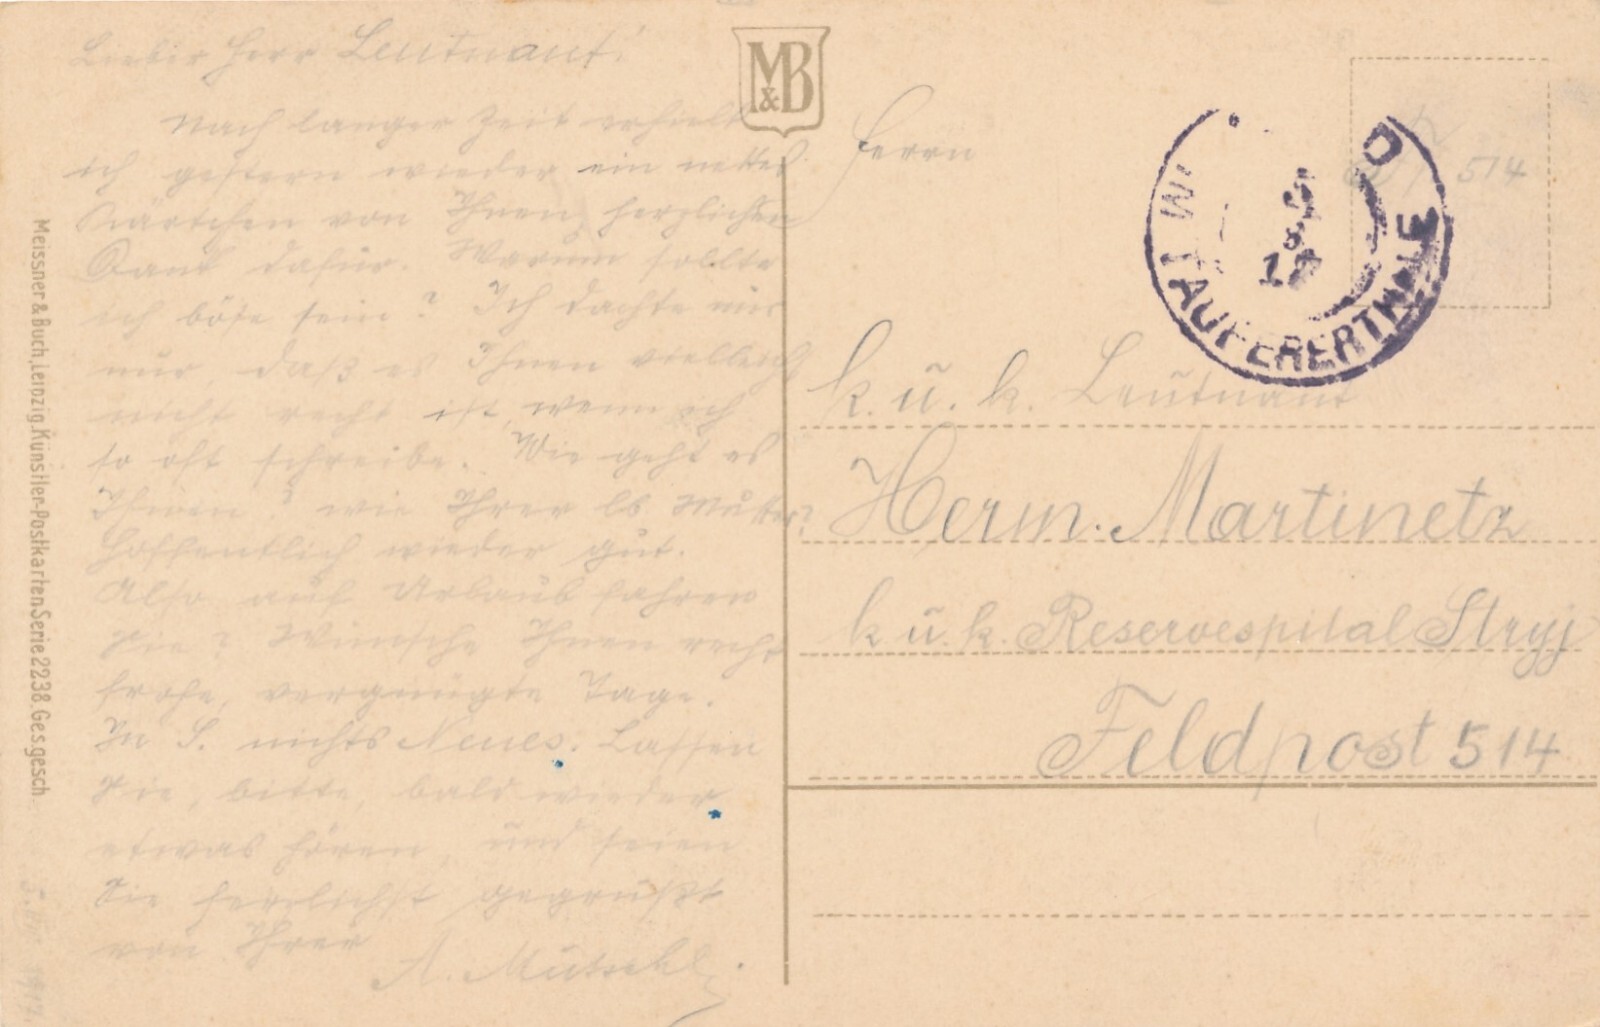 Lieber Herr Leutnant!
Nach langer Zeit erhielt
ich gestern wieder ein nettes
Kärtchen von Ihnen, herzlichen
Dank dafür. Warum sollte
ich böse sein? Ich dachte mir
nur daß es Ihnen vielleicht
nicht recht ist, wenn ich
so oft schreibe. Wie geht es
Ihnen? wie Ihrer lb Mutter?
Hoffentlich wieder gut.
Also auf Urlaub fahren
Sie? Wünsche Ihnen recht
frohe, vergnügte Tage.
In S. nichts Neues. Lassen
Sie, bitte, bald wieder
etwas hören, und seien
Sie herzlichst gegrüßt
von Ihrer
A. Mutschl
Meissner & Buch, Leipzig. Künstler-Postkarten Serie 2238. Ges. gesch.
M&B
514
5 8 17
TAUFERERTHALE
Herrn
k. u. k. Leutnant
Herm. Martinetz
k. u. k. Reservespital Stryj
Feldpost 514